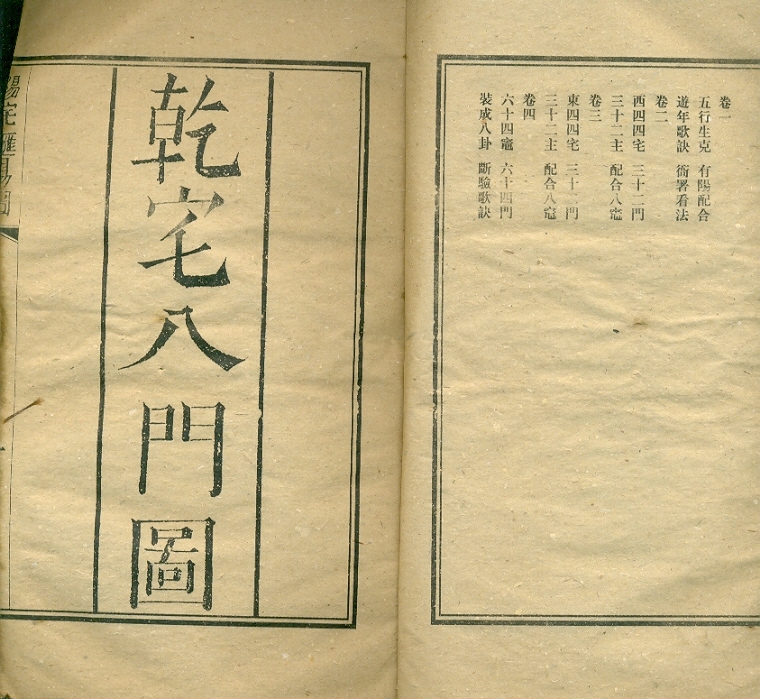 卷一
五行生克 有陽配合
遊年歌訣 衙署看法
卷二
西四四宅 三十二門
三十二主 配合八竈
卷三
東四四宅 三十二門
三十二主 配合八竈
卷四
六十四竈 六十四門
裝成八卦 斷驗歌訣
乾宅八門圖